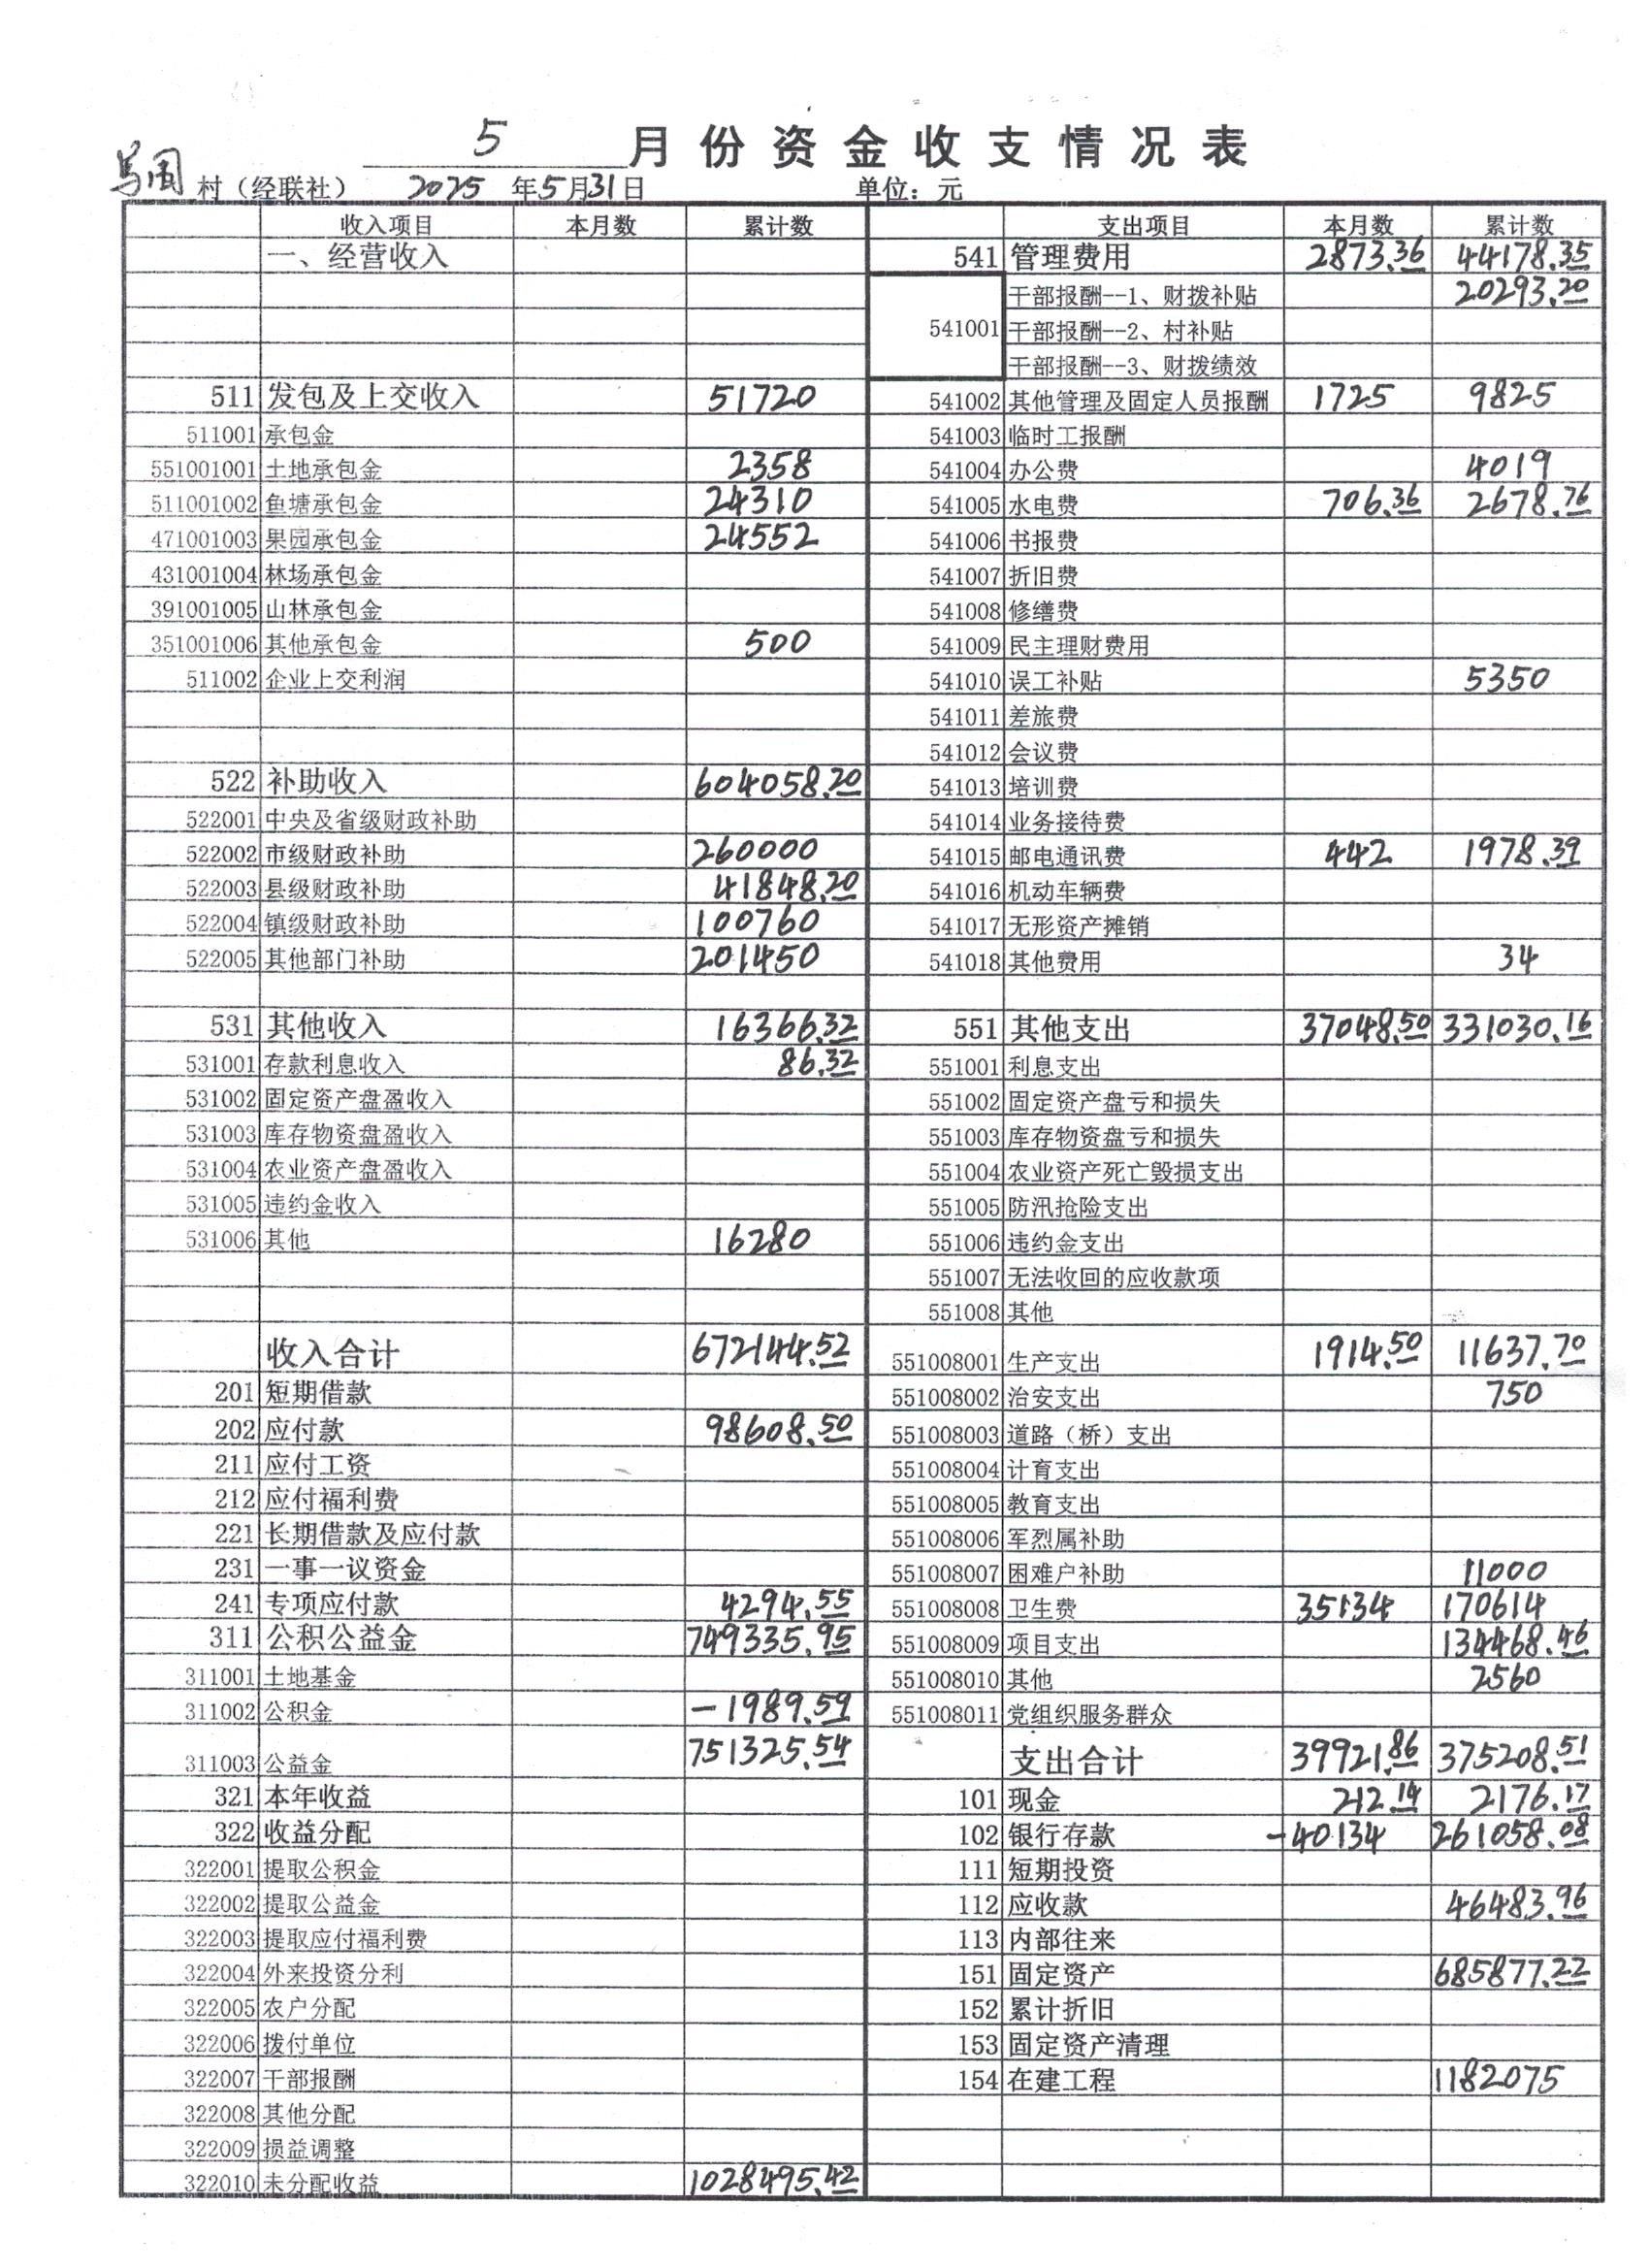 5 月份资金收支情况表
马周 村（经联社） 2025 年5月31日 单位：元
收入项目 本月数 累计数 支出项目 本月数 累计数
一、经营收入 541 管理费用 2873.36 44178.35
干部报酬--1、财拨补贴 20293.20
541001 干部报酬--2、村补贴
干部报酬--3、财拨绩效
511 发包及上交收入 51720 541002 其他管理及固定人员报酬 1725 9825
511001 承包金 541003 临时工报酬
551001001 土地承包金 2358 541004 办公费 4019
511001002 鱼塘承包金 24310 541005 水电费 706.36 2678.76
471001003 果园承包金 24552 541006 书报费
431001004 林场承包金 541007 折旧费
391001005 山林承包金 541008 修缮费
351001006 其他承包金 500 541009 民主理财费用
511002 企业上交利润 541010 误工补贴 5350
541011 差旅费
541012 会议费
522 补助收入 604058.20 541013 培训费
522001 中央及省级财政补助 541014 业务接待费
522002 市级财政补助 260000 541015 邮电通讯费 442 1978.39
522003 县级财政补助 41848.20 541016 机动车辆费
522004 镇级财政补助 100760 541017 无形资产摊销
522005 其他部门补助 201450 541018 其他费用 34
531 其他收入 16366.32 551 其他支出 37048.50 331030.16
531001 存款利息收入 86.32 551001 利息支出
531002 固定资产盘盈收入 551002 固定资产盘亏和损失
531003 库存物资盘盈收入 551003 库存物资盘亏和损失
531004 农业资产盘盈收入 551004 农业资产死亡毁损支出
531005 违约金收入 551005 防汛抢险支出
531006 其他 16280 551006 违约金支出
551007 无法收回的应收款项
551008 其他
收入合计 672144.52 551008001 生产支出 1914.50 11637.70
201 短期借款 551008002 治安支出 750
202 应付款 98608.50 551008003 道路（桥）支出
211 应付工资 551008004 计育支出
212 应付福利费 551008005 教育支出
221 长期借款及应付款 551008006 军烈属补助
231 一事一议资金 551008007 困难户补助 11000
241 专项应付款 4294.55 551008008 卫生费 35134 170614
311 公积公益金 749335.95 551008009 项目支出 134468.46
311001 土地基金 551008010 其他 2560
311002 公积金 -1989.59 551008011 党组织服务群众
311003 公益金 751325.54 支出合计 39921.86 375208.51
321 本年收益 101 现金 212.14 2176.17
322 收益分配 102 银行存款 -40134 261058.08
322001 提取公积金 111 短期投资
322002 提取公益金 112 应收款 46483.96
322003 提取应付福利费 113 内部往来
322004 外来投资分利 151 固定资产 685877.22
322005 农户分配 152 累计折旧
322006 拨付单位 153 固定资产清理
322007 干部报酬 154 在建工程 1182075
322008 其他分配
322009 损益调整
322010 未分配收益 1028495.42